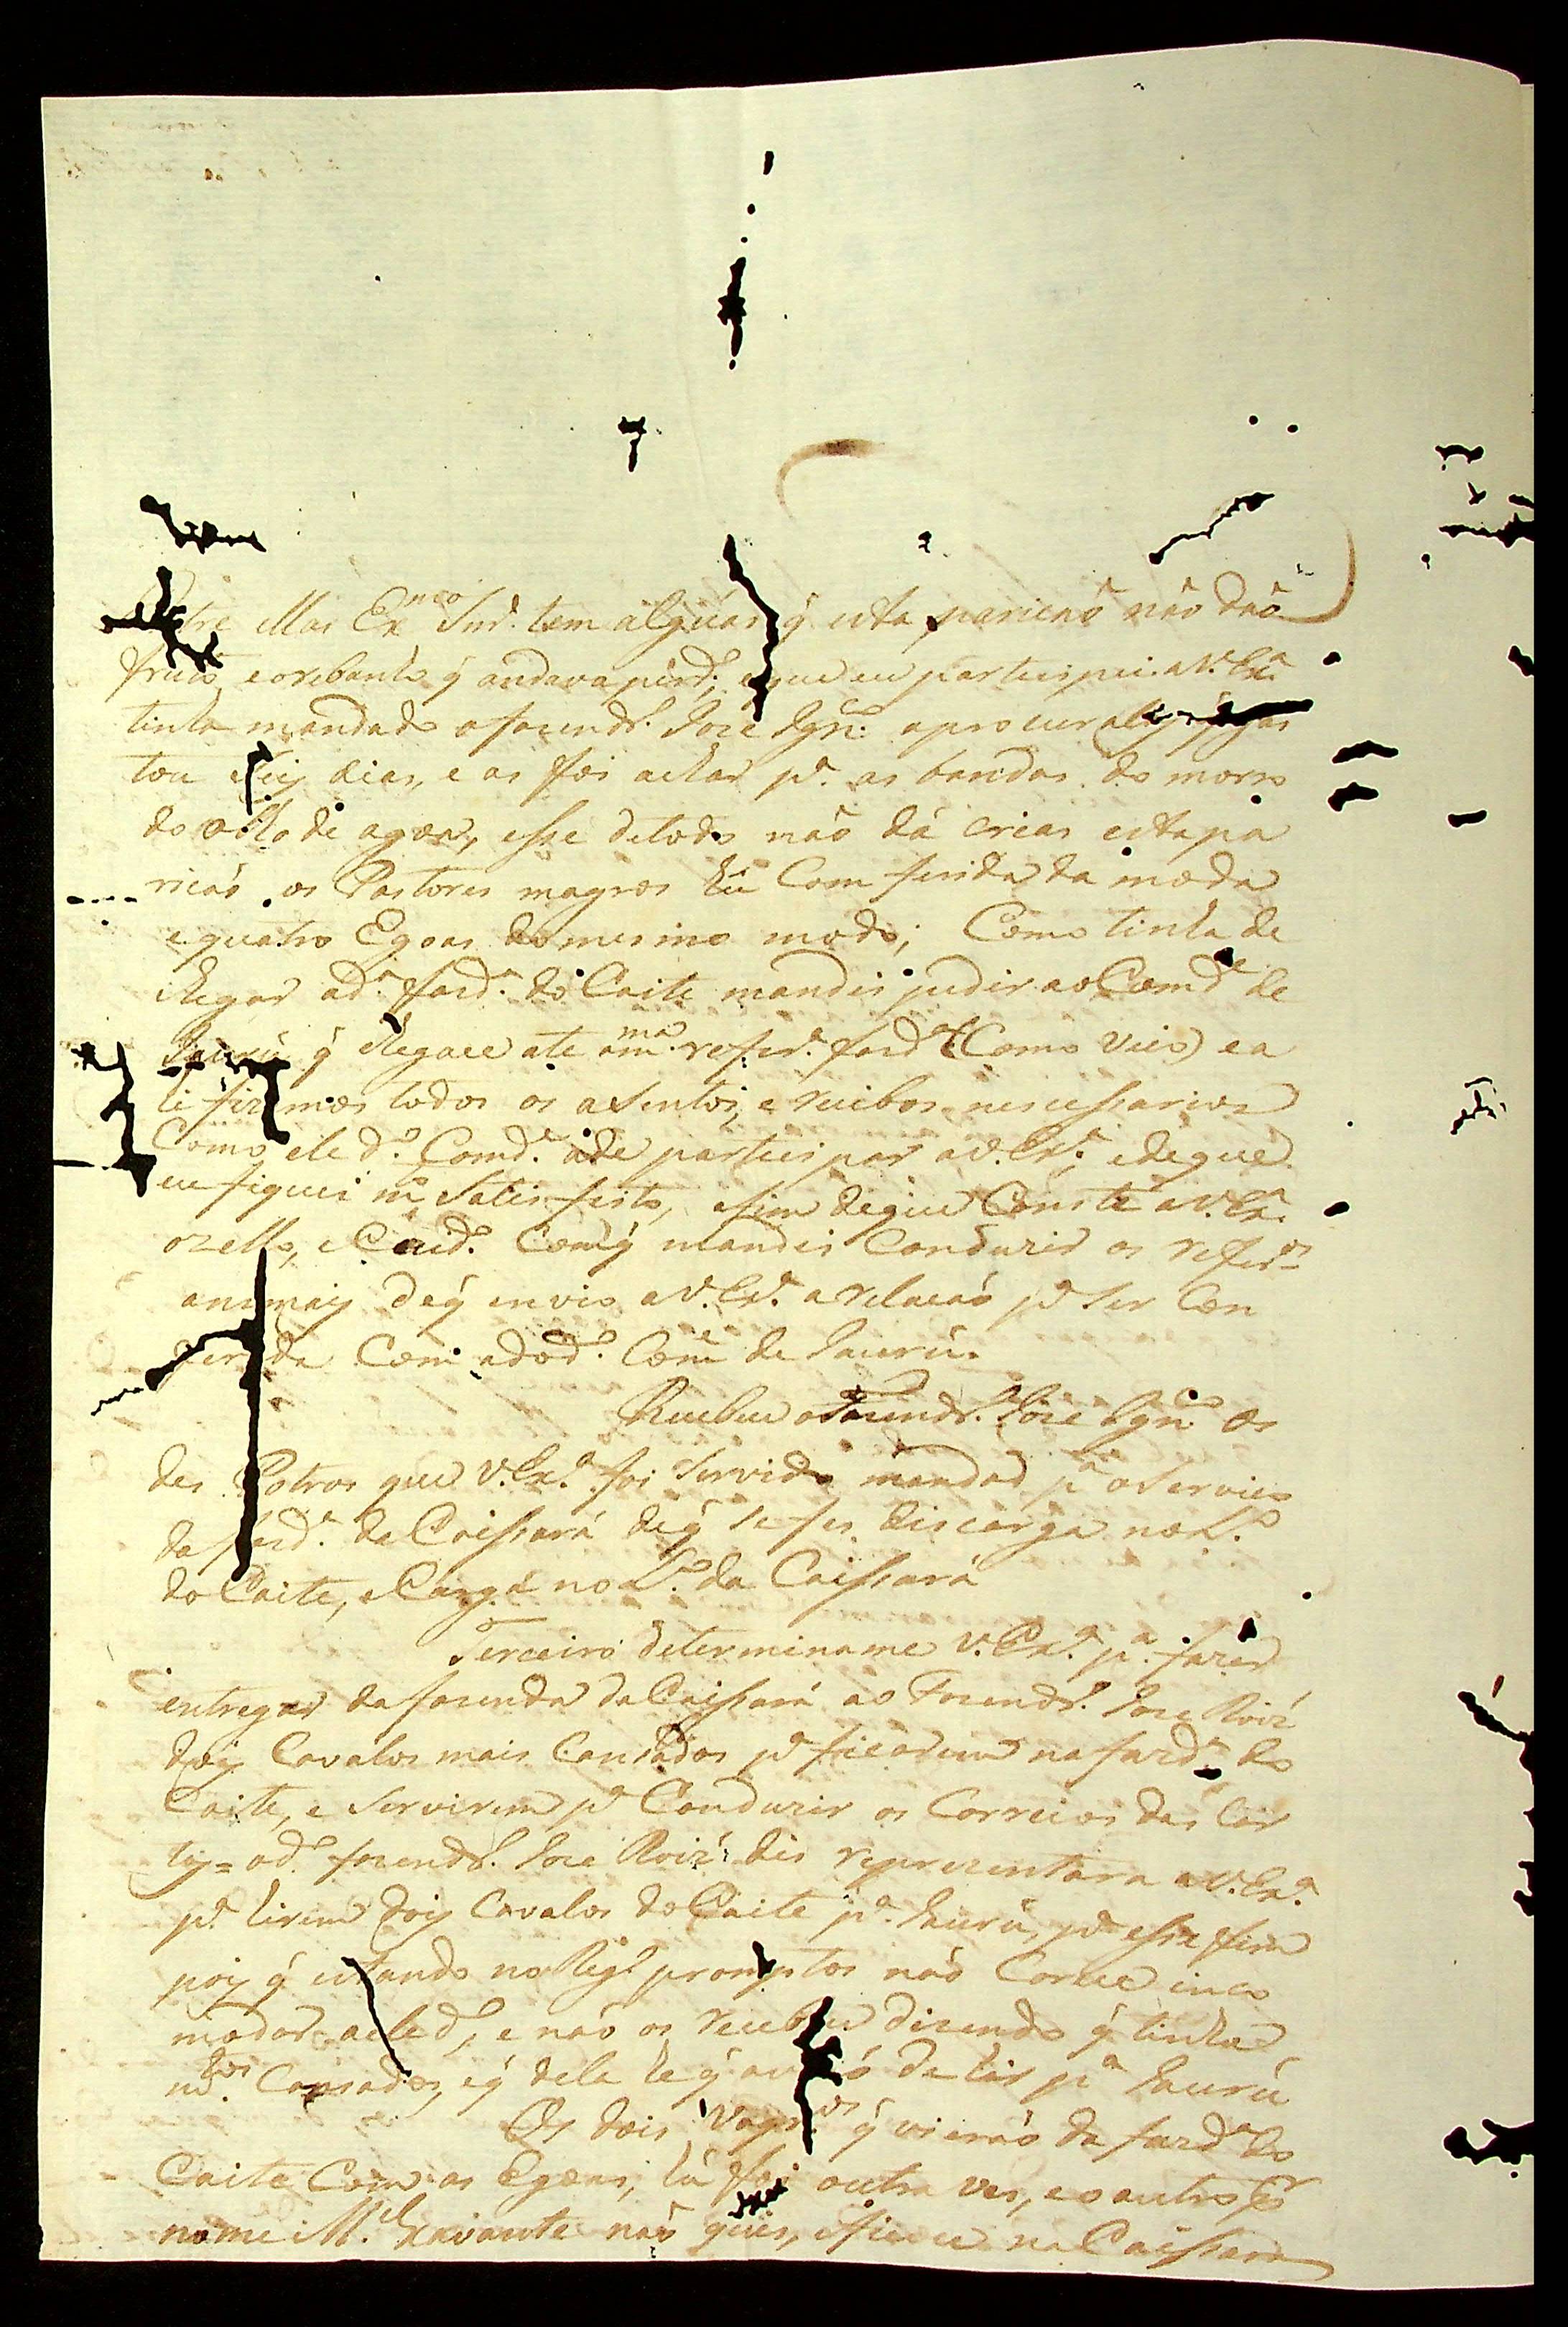 Mas Ex.mo Snr. tem alguas q̃ esta pariçaõ naõ daõ
fruto, e o rebanho q̃ andava perd.º, e que eu participei a V. Ex.ª
tinha mandado o fazendr.º Joze Ign.co a procurallo, gas
tou dias, e as foi achar p.ª as bandas do morro
do olho de agoa, esse de todo naõ dá crias esta pa
riçaõ os Pastores magros hũ Com ferida da moeda
e quatro Egoas do mesmo modo; Como tinha de
chegar a d.ª fazd.ª do Caite mandei pedir ao Comd.e de
Jaurú q̃ chegace ate a m.ma refer.ª fazd.ª (Como veio) e a
li fizemos todos os asentos, e recibos nescessarios
Como ele d.º Comd.e ade participar a V. Ex.ª, e de que
eu fiquei m.º Satisfeito, e fim de que Conste a V. Ex.ª
o zello, e Cuid.º Com q̃ mandei Conduzir os refer.os
animais de q̃ envio a V. Ex.ª a relaçaõ p.ª Ser Con
ferida Com a do d.º Com.e de Jaurú.
Recebeu o Fazendr.º Joze Ign.co os
des Potros que V. Ex.ª foi Servido mandar p.ª o Serviço
da fazd.ª da Caissará de q̃ Se fes discarga no L.º
do Caite, e Carga no L.º da Caissará
Terceiro determiname V. Ex.ª p.ª fazer
entregar da fazenda da Caissará ao Fazendr.º Joze Roiz
dois Cavalos mais Cansados p.ª ficarem na fazd.ª do
Caite, e Servirem p.ª Conduzir os Correios das Car
tas = o d.º fazendr.º Joze Roiz dis reprezentara a V. Ex.ª
p.ª hirem dois Cavalos do Caite p.ª Jaurú, p.ª esse fim
pois q̃ estando no Reg.º promptos naõ Corre inco
modar a ele d.º, e naõ os recebeu dizendo q̃ tinha
m.tos Cansados, e q̃ dela he q̃ de hir p.ª Jaurú
Os dois q̃ vieraõ da fazd.ª do
Caite Com as Egoas, hũ foi outra ves, e o outro p.r
nome M.el Xavante naõ quis, e ficou na Caissara